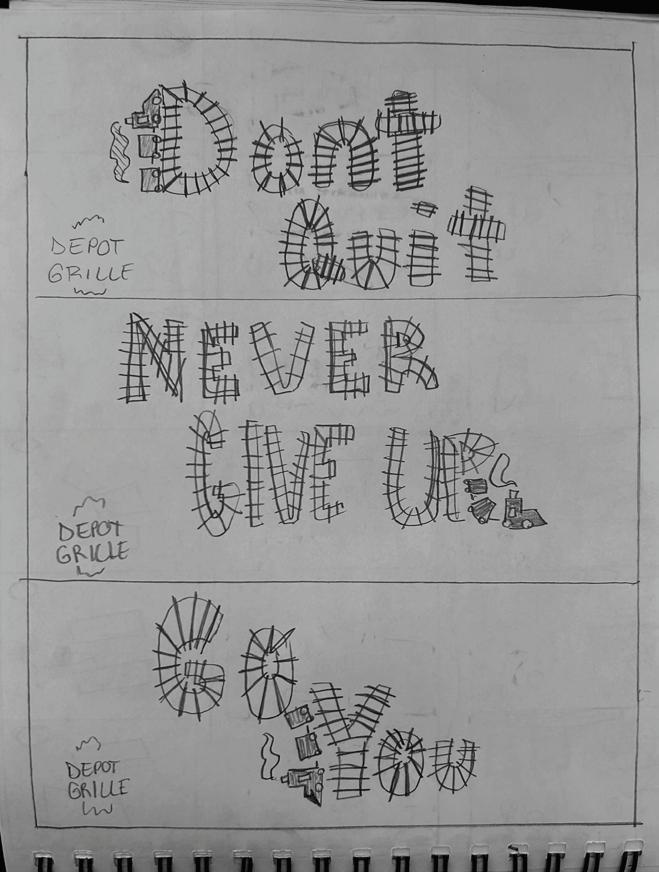 Dont
Quit
DEPOT
GRILLE
NEVER
GIVE UP
DEPOT
GRILLE
GO
You
DEPOT
GRILLE